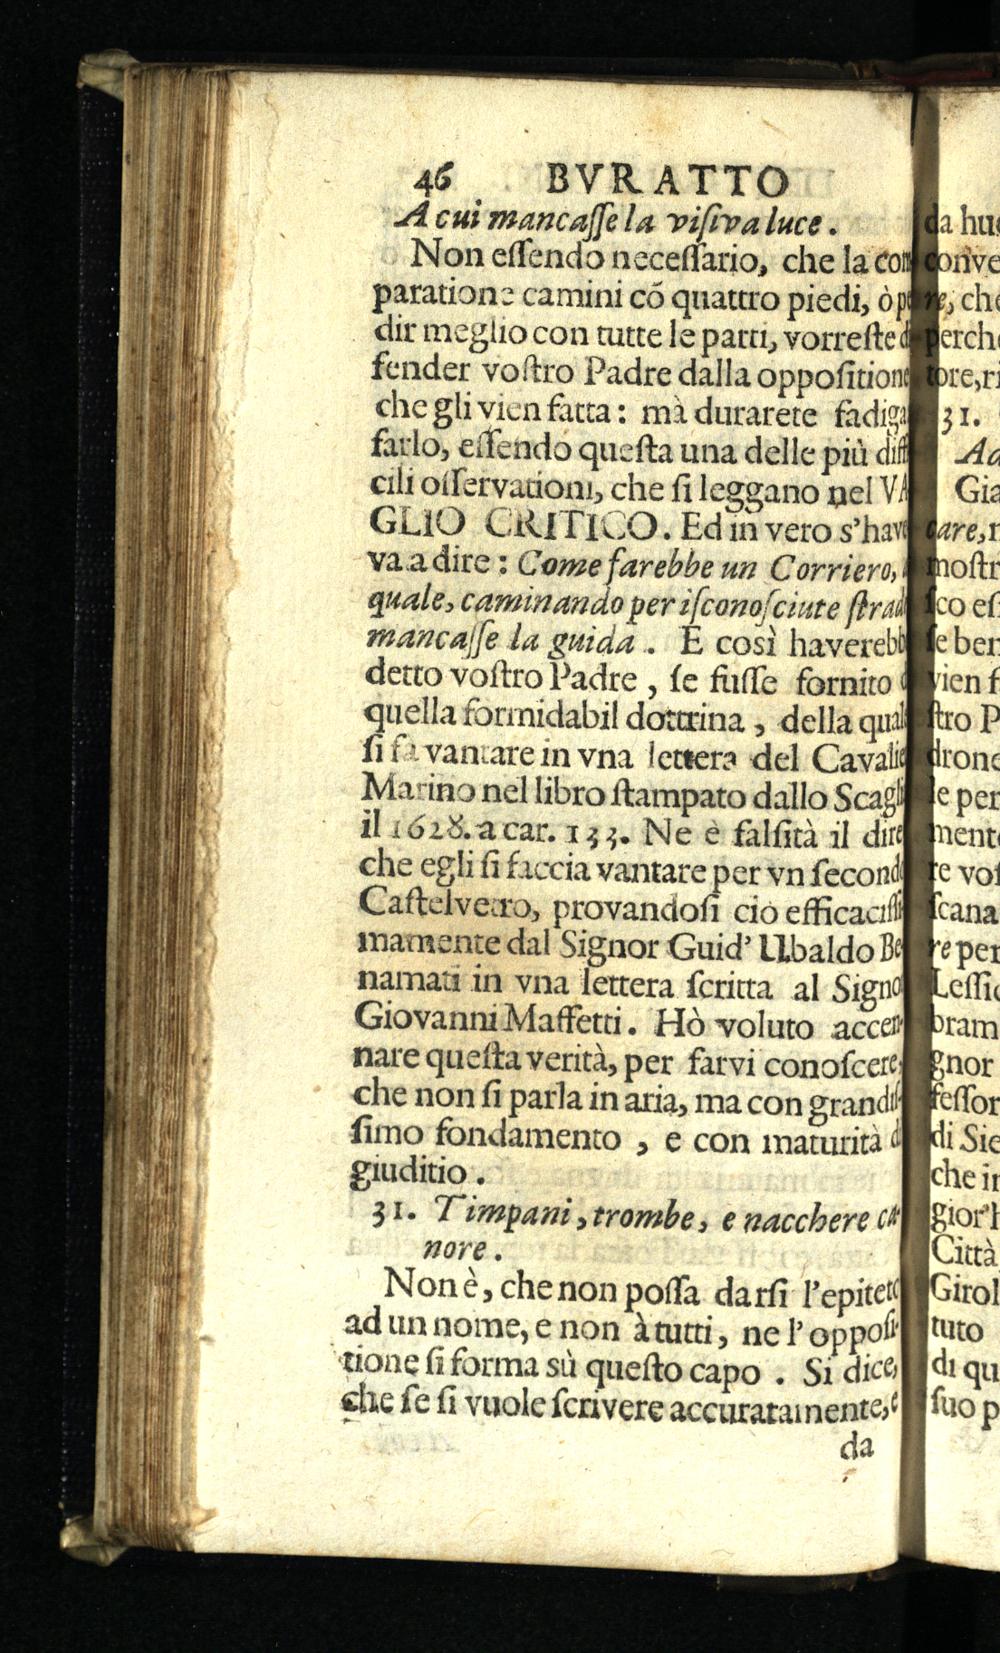 46 BVRATTO
A cui mancaſſe la viſiva luce.
Non eſſendo neceſſario, che la com
paratione camini cõ quattro piedi, ò pe
dir meglio con tutte le parti, vorreſte d
fender voſtro Padre dalla oppoſitione
che gli vien fatta: mà durarete fadiga
farlo, eſſendo queſta una delle più diff
cili oſſervationi, che ſi leggano nel VA
GLIO CRITICO. Ed in vero s'have
va a dire: Come farebbe un Corriero,
quale, caminando per iſconoſciute ſtrad
mancaſſe la guida. E così haverebb
detto voſtro Padre, ſe fuſſe fornito
quella formidabil dottrina, della qual
ſi fa vantare in vna lettera del Cavalie
Marino nel libro ſtampato dallo Scagli
il 1628. a car. 133. Ne è falſità il dire
che egli ſi faccia vantare per vn ſecondo
Caſtelvetro, provandoſi ciò efficaciſſi
mamente dal Signor Guid' Ubaldo Be
namati in vna lettera ſcritta al Signo
Giovanni Maffetti. Hò voluto accen-
nare queſta verità, per farvi conoſcere,
che non ſi parla in aria, ma con grandiſ-
ſimo fondamento, e con maturità di
giuditio.
31. Timpani, trombe, e nacchere ca-
nore.
Non è, che non poſſa darſi l'epiteto
ad un nome, e non à tutti, ne l'oppoſi-
tione ſi forma sù queſto capo. Si dice,
che ſe ſi vuole ſcrivere accuratamente, e
da
da hu
conve
re, che
perche
tore, ri
31.
Gia
care,
moſtr
ſco eſ
ſe ben
vien f
ſtro P
drone
le per
mente
re voſ
ſcana
re per
Leſſic
bram
gnor
feſſor
di Sie
che in
gior h
Città
Girol
tuto
di qu
ſuo p